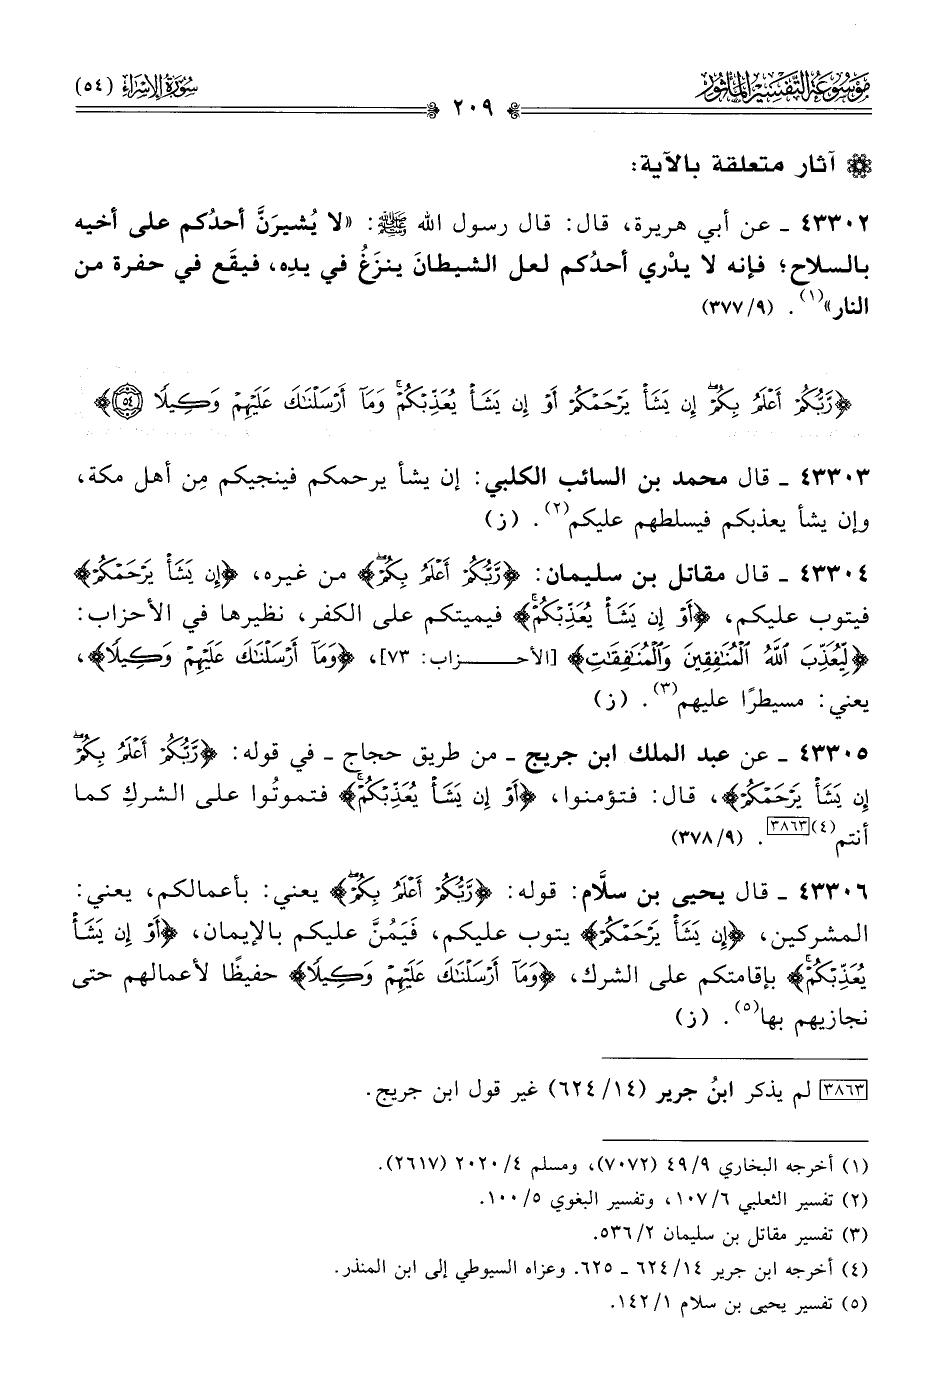 مَوْسُوعَةُ التَّفْسِيرِ المَأْثُورِ
سُورَةُ الإِسْرَاءِ (٥٤)
٢٠٩
آثار متعلقة بالآية:
٤٣٣٠٢ ـ عن أبي هريرة، قال: قال رسول الله ﷺ: «لا يُشيرَنَّ أحدُكم على أخيه
بالسلاح؛ فإنه لا يدْري أحدُكم لعل الشيطانَ ينزَغُ في يدِه، فيقَع في حفرة من
النار»(١). (٩/ ٣٧٧)
﴿رَّبُّكُمْ أَعْلَمُ بِكُمْ ۖ إِن يَشَأْ يَرْحَمْكُمْ أَوْ إِن يَشَأْ يُعَذِّبْكُمْ ۚ وَمَا أَرْسَلْنَاكَ عَلَيْهِمْ وَكِيلًا ٥٤﴾
٤٣٣٠٣ ـ قال محمد بن السائب الكلبي: إن يشأ يرحمكم فينجيكم مِن أهل مكة،
وإن يشأ يعذبكم فيسلطهم عليكم(٢). (ز)
٤٣٣٠٤ ـ قال مقاتل بن سليمان: ﴿رَّبُّكُمْ أَعْلَمُ بِكُمْ ۖ﴾ من غيره، ﴿إِن يَشَأْ يَرْحَمْكُمْ﴾
فيتوب عليكم، ﴿أَوْ إِن يَشَأْ يُعَذِّبْكُمْ ۚ﴾ فيميتكم على الكفر، نظيرها في الأحزاب:
﴿لِّيُعَذِّبَ اللَّهُ الْمُنَافِقِينَ وَالْمُنَافِقَاتِ﴾ [الأحزاب: ٧٣]، ﴿وَمَا أَرْسَلْنَاكَ عَلَيْهِمْ وَكِيلًا﴾،
يعني: مسيطرًا عليهم(٣). (ز)
٤٣٣٠٥ ـ عن عبد الملك ابن جريج ـ من طريق حجاج ـ في قوله: ﴿رَّبُّكُمْ أَعْلَمُ بِكُمْ ۖ
إِن يَشَأْ يَرْحَمْكُمْ﴾، قال: فتؤمنوا، ﴿أَوْ إِن يَشَأْ يُعَذِّبْكُمْ ۚ﴾ فتموتُوا على الشركِ كما
أنتم(٤)[٣٨٦٣]. (٩/ ٣٧٨)
٤٣٣٠٦ ـ قال يحيى بن سلَّام: قوله: ﴿رَّبُّكُمْ أَعْلَمُ بِكُمْ ۖ﴾ يعني: بأعمالكم، يعني:
المشركين، ﴿إِن يَشَأْ يَرْحَمْكُمْ﴾ يتوب عليكم، فَيَمُنَّ عليكم بالإيمان، ﴿أَوْ إِن يَشَأْ
يُعَذِّبْكُمْ ۚ﴾ بإقامتكم على الشرك، ﴿وَمَا أَرْسَلْنَاكَ عَلَيْهِمْ وَكِيلًا﴾ حفيظًا لأعمالهم حتى
نجازيهم بها(٥). (ز)
[٣٨٦٣] لم يذكر ابنُ جرير (١٤/ ٦٢٤) غير قول ابن جريج.
(١) أخرجه البخاري ٩/ ٤٩ (٧٠٧٢)، ومسلم ٤/ ٢٠٢٠ (٢٦١٧).
(٢) تفسير الثعلبي ٦/ ١٠٧، وتفسير البغوي ٥/ ١٠٠.
(٣) تفسير مقاتل بن سليمان ٢/ ٥٣٦.
(٤) أخرجه ابن جرير ١٤/ ٦٢٤ ـ ٦٢٥. وعزاه السيوطي إلى ابن المنذر.
(٥) تفسير يحيى بن سلام ١/ ١٤٢.